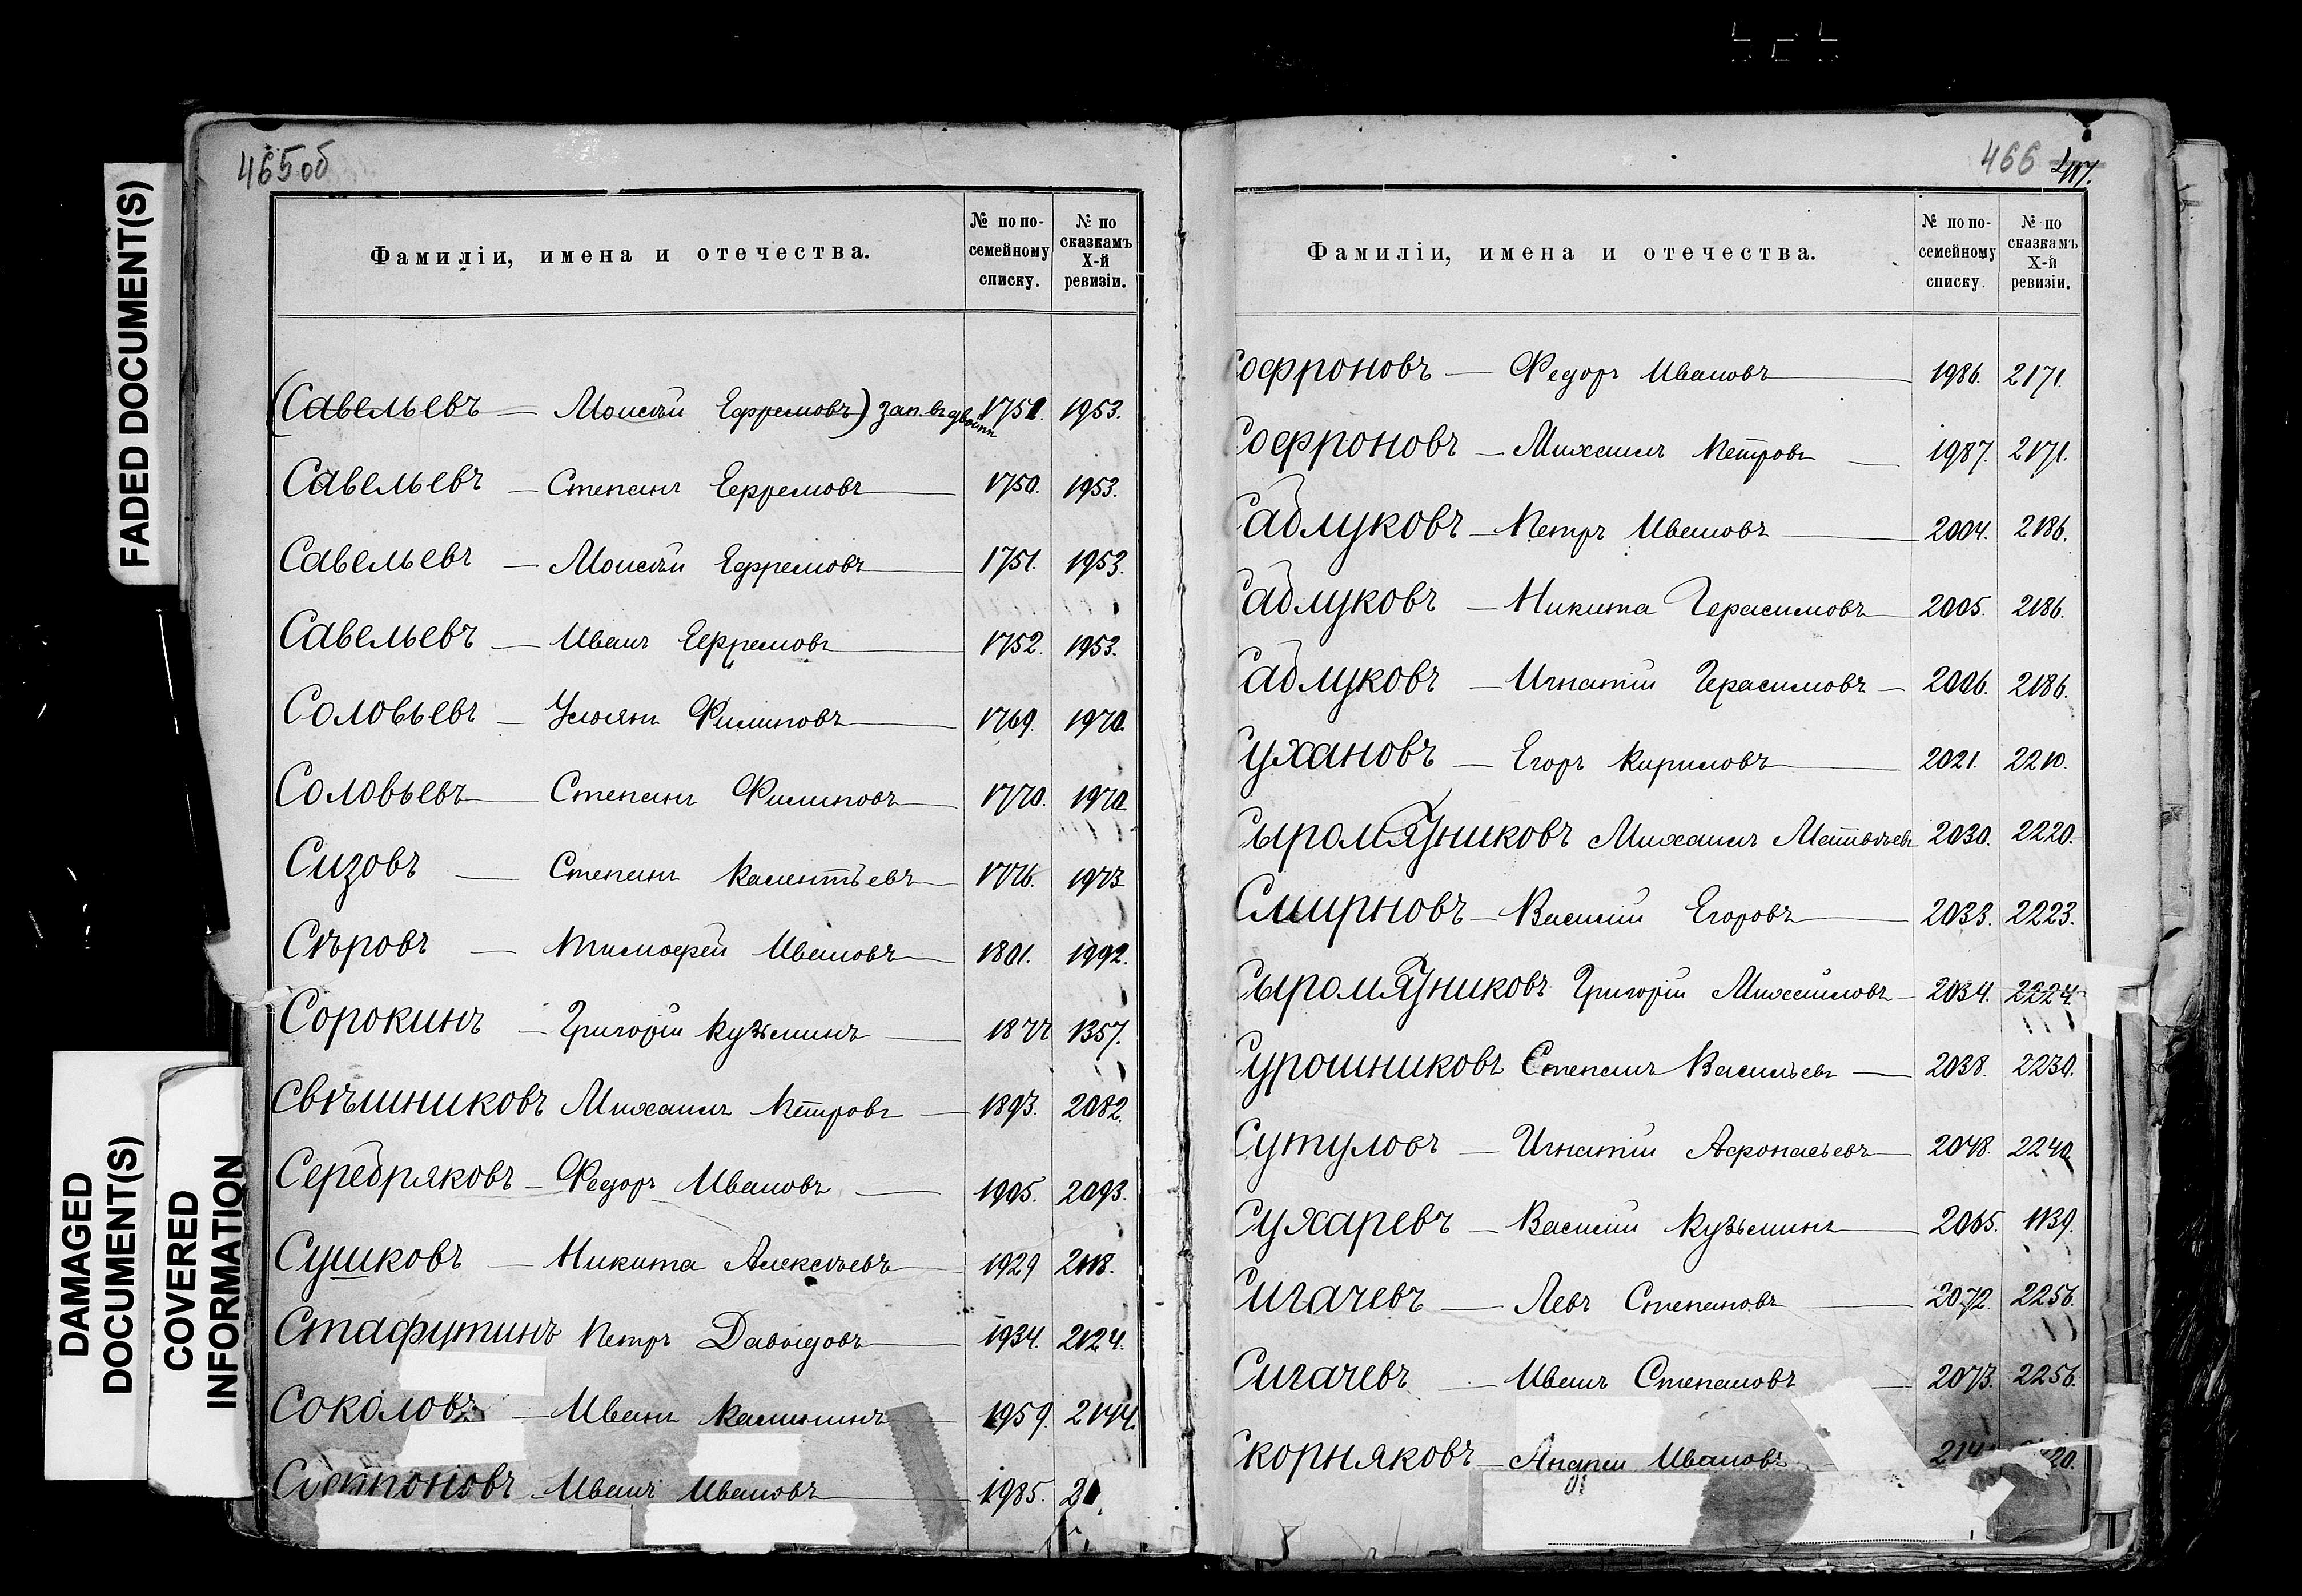 FADED DOCUMENT(S)
DAMAGED
DOCUMENT(S)
COVERED
INFORMATION
465об
Фамиліи, имена и отечества.
№ по по-
семейному
списку.
№ по
сказкамъ
X-й
ревизіи.
(Савельевъ — Моисѣй Ефремовъ) зап. вдвойнѣ 1751. 1953.
Савельевъ — Степанъ Ефремовъ 1750. 1953.
Савельевъ — Моисѣй Ефремовъ 1751. 1953.
Савельевъ — Иванъ Ефремовъ 1752. 1953.
Соловьевъ — Ульянъ Филиповъ 1769. 1970.
Соловьевъ — Степанъ Филиповъ 1770. 1970.
Сизовъ — Степанъ Калентьевъ 1776. 1973.
Сѣровъ — Тимофей Ивановъ 1801. 1992.
Сорокинъ — Григорій Кузьминъ 1877 1357.
Свѣшниковъ Михаилъ Петровъ 1893. 2082.
Серебряковъ — Федоръ Ивановъ 1905. 2093.
Сушковъ — Никита Алексѣевъ 1929 2118.
Стафутинъ Петръ Давыдовъ 1934. 2124.
Соколовъ — Иванъ Калининъ 1959. 2144.
Иванъ Ивановъ 1985.
466 417.
Фамиліи, имена и отечества.
№ по по-
семейному
списку.
№ по
сказкамъ
X-й
ревизіи.
Софроновъ — Федоръ Ивановъ 1986. 2171.
Софроновъ — Михаилъ Петровъ 1987. 2171.
Садлуковъ — Петръ Ивановъ 2004. 2186.
Садлуковъ — Никита Герасимовъ 2005. 2186.
Садлуковъ — Игнатій Герасимовъ 2006. 2186.
Сухановъ — Егоръ Кириловъ 2021. 2210.
Сыромятниковъ Михаилъ Матвѣевъ 2030. 2220.
Смирновъ — Василій Егоровъ 2033. 2223.
Сыромятниковъ Григорій Михайловъ 2034. 2224.
Сурошниковъ Степанъ Васильевъ 2038. 2230.
Сутуловъ — Игнатій Афонасьевъ 2048. 2240.
Сухаревъ — Василій Кузьминъ 2065. 1139.
Сигачевъ — Левъ Степановъ 2072. 2256.
Сигачевъ — Иванъ Степановъ 2073. 2256.
Скорняковъ — Андрей Ивановъ